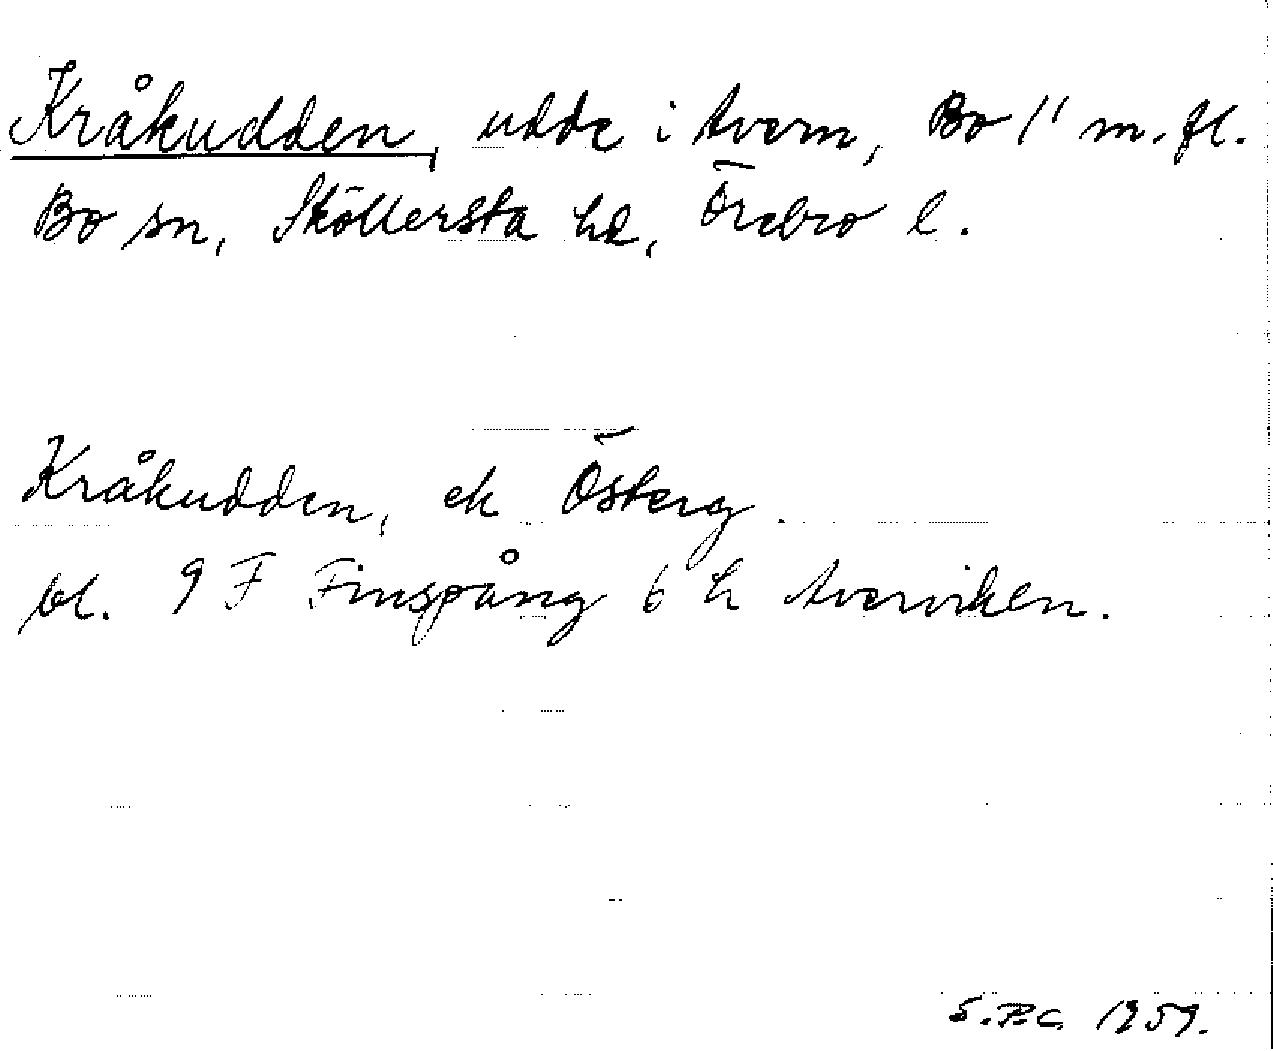 Kråkudden, udde i Avern, Bo 1¹ m. fl.
Bo sn, Sköllersta hd, Örebro l.
Kråkudden, ek Österg.
bl. 9 F Finspång 6 h Averviken.
S.P.C. 1959.